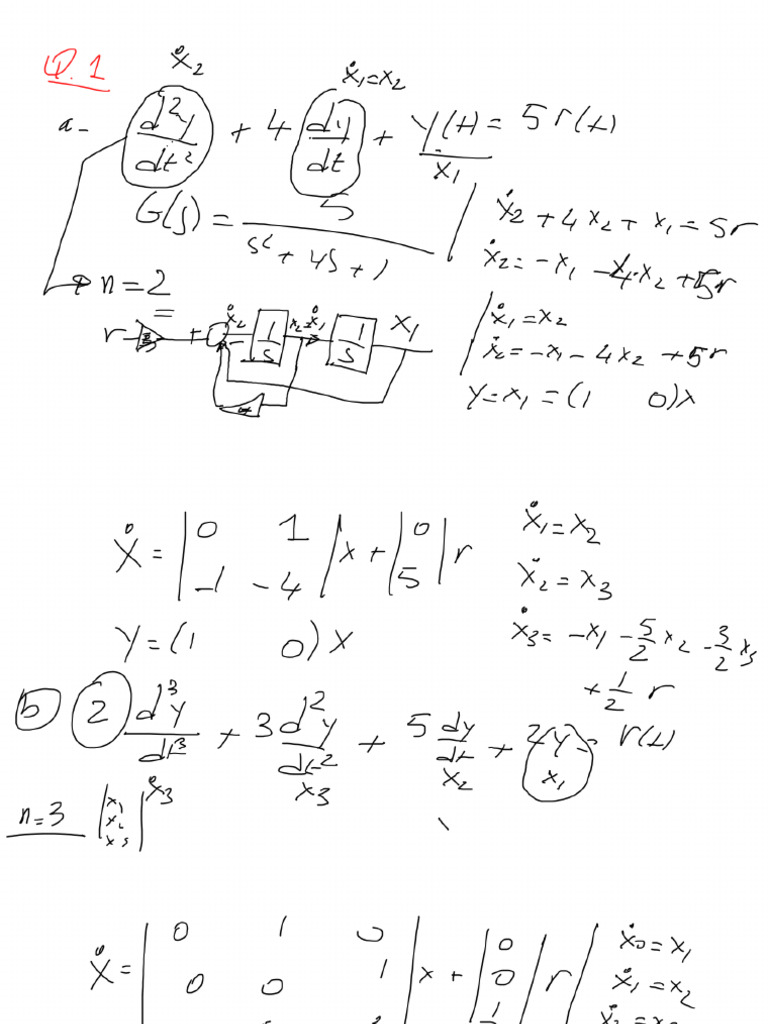 Q.1
ẋ2
ẋ1=x2
a- d²y/dt² + 4 dy/dt + y(t) = 5 r(t)
x1
G(s) = 5/(s² + 4s + 1)
ẋ2 + 4x2 + x1 = 5r
ẋ2 = -x1 - 4·x2 + 5r
n=2
r + ẋ2 1/s x2=ẋ1 1/s x1
ẋ1=x2
ẋ2=-x1-4x2+5r
y=x1=(1 0)x
Ẋ = |0 1| x + |0| r
|-1 -4| |5|
Y=(1 0)X
ẋ1=x2
ẋ2=x3
ẋ3= -x1 - 5/2 x2 - 3/2 x3
+ 1/2 r
b 2 d³y/dt³ + 3 d²y/dt² + 5 dy/dt + 2y = r(t)
ẋ3 x3 x2 x1
n=3 |x1 x2 x3|
Ẋ = |0 1 0| x + |0| r
|0 0 1| |0|
ẋ0=x1
ẋ1=x2